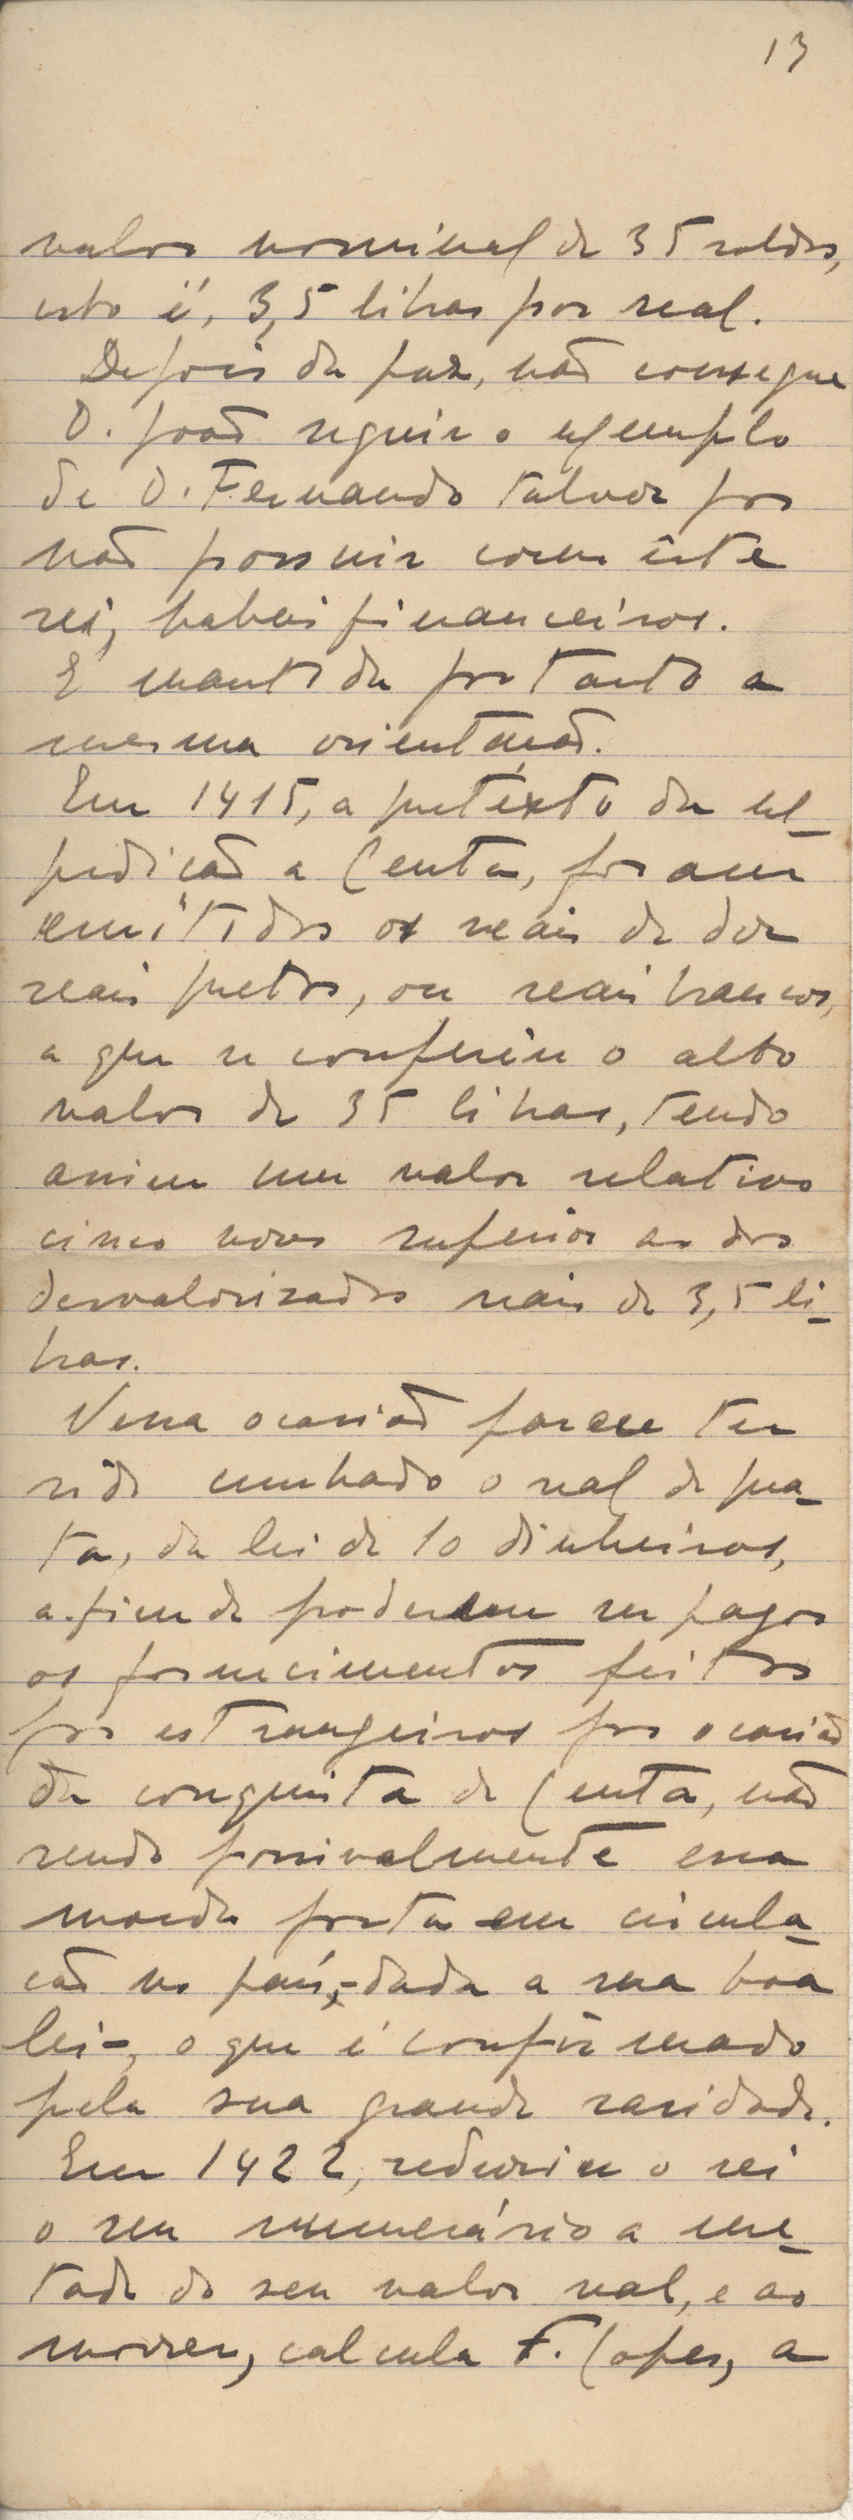 13
valor nominal de 35 soldos,
isto é, 3,5 libras por real.
Depois da paz, não consegue
D. João seguir o exemplo
de D. Fernando talvez por
não possuir como êste
rei, habeis financeiros.
É mantida portanto a
mesma orientação.
Em 1415, a pretexto da ex-
pedição a Ceuta, foram
emitidos os reais de dez
reais pretos, ou reais brancos,
a que se conferiu o alto
valor de 35 libras, tendo
assim um valor relativo
cinco vezes superior ao dos
desvalorizados reais de 3,5 li-
bras.
Nessa ocasião parece ter
sido cunhado o real de pra-
ta, da lei de 10 dinheiros,
a-fim de poderem ser pagos
os fornecimentos feitos
por estrangeiros por ocasião
da conquista de Ceuta, não
sendo possivelmente essa
moeda posta em circula-
ção no país, - dada a sua bôa
lei -, o que é confirmado
pela sua grande raridade.
Em 1422, reduziu o rei
o seu numerário a me-
tade do seu valor real, e ao
morrer, calcula F. Lopes, a